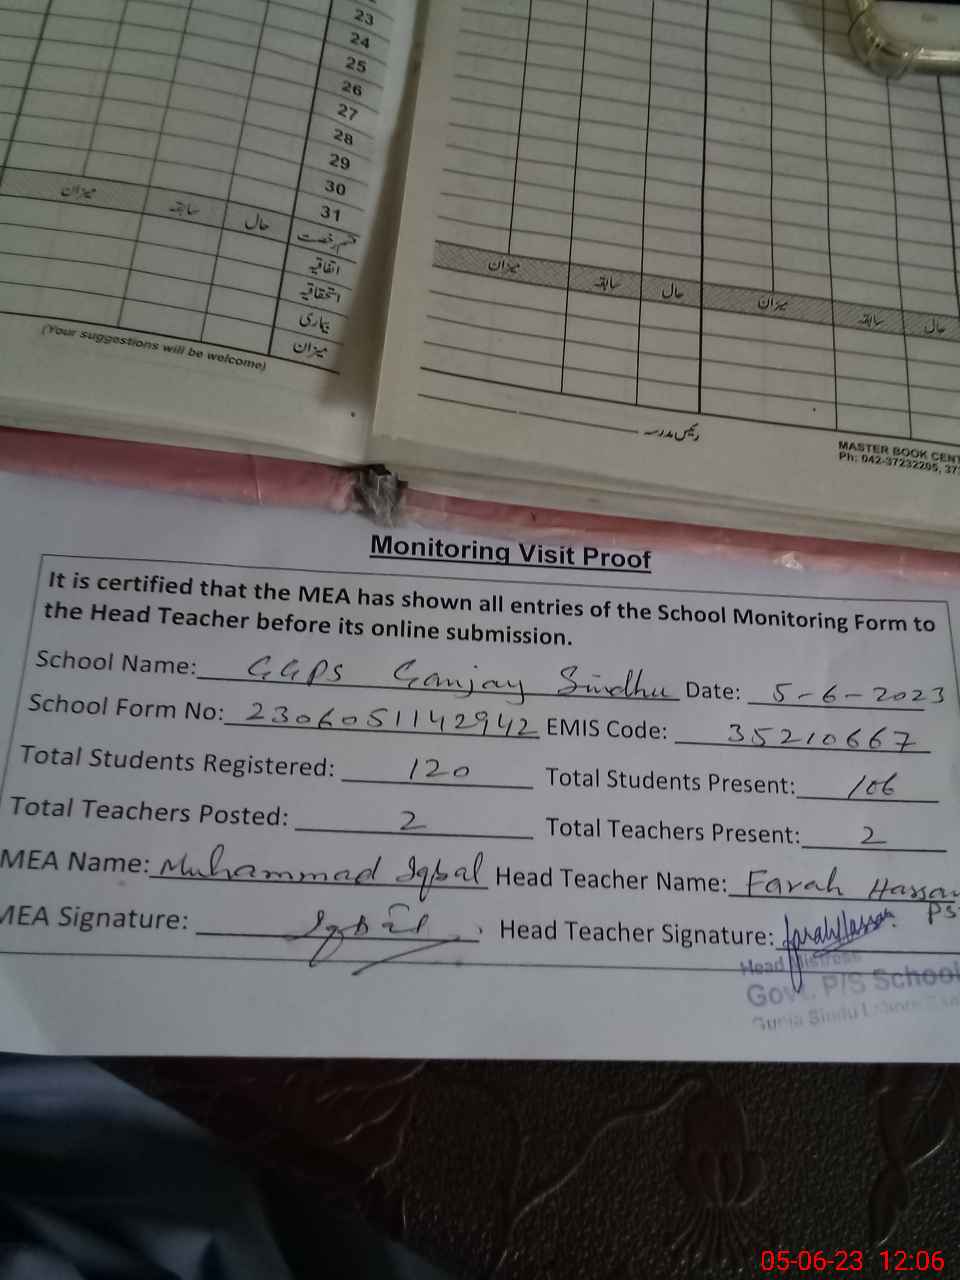 23
24
25
26
27
28
29
30
31
میزان سابقہ حال قسم رخصت
اتفاقیہ
استحقاقیہ
بیماری
میزان
(Your suggestions will be welcome)
میزان سابقہ حال میزان سابقہ حال
رئیس مدرسہ
MASTER BOOK CENT
Ph: 042-37232205, 37
Monitoring Visit Proof
It is certified that the MEA has shown all entries of the School Monitoring Form to
the Head Teacher before its online submission.
School Name: GGPS Ganjay Sindhu Date: 5-6-2023
School Form No: 2306051142942 EMIS Code: 35210667
Total Students Registered: 120 Total Students Present: 106
Total Teachers Posted: 2 Total Teachers Present: 2
MEA Name: Muhammad Iqbal Head Teacher Name: Farah Hassan
PS
MEA Signature: Iqbal Head Teacher Signature: Farah Hassan
Head Mistress
Govt. P/S School
Sindu Lahore
05-06-23 12:06